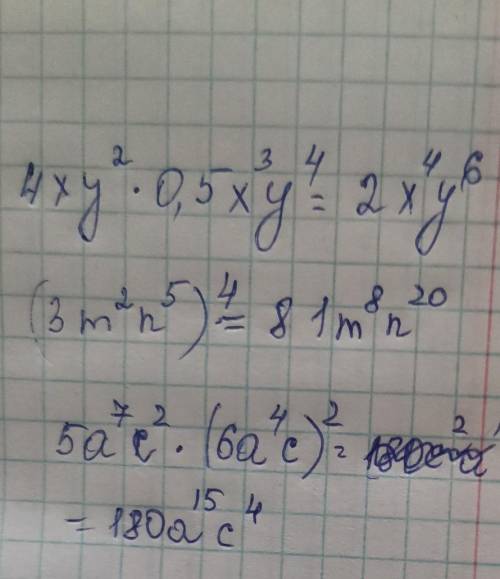 4xy² · 0,5x³y⁴ = 2x⁴y⁶
(3m²n⁵)⁴ = 81m⁸n²⁰
5a⁷c² · (6a⁴c)² =
= 180a¹⁵c⁴